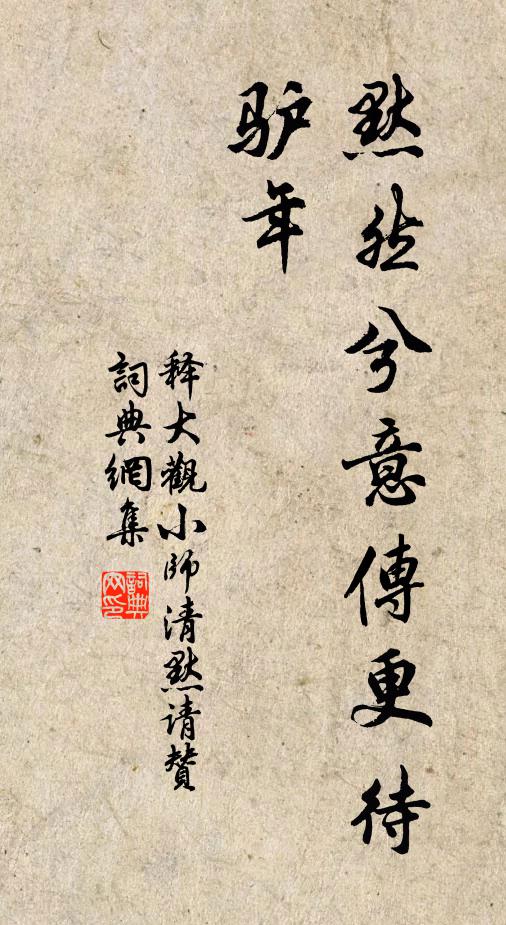 默然兮意傳更待
驴年
释大觀小師清默请贊
詞典網集
詞典网印